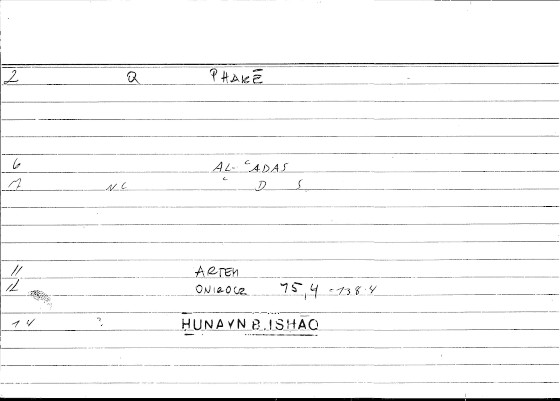 2 Q PHAKĒ
6 AL-ʿADAS
7 NC ʿ D S
11 ARTEM
12 ONIROCR 75,4 -138.4
14 ?. HUNAYN B.ISHĀQ